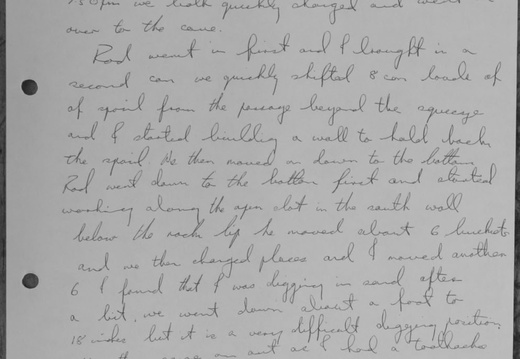 7.30pm we both quickly changed and went
over to the cave.
Rod went in first and I brought in a
second can we quickly shifted 8 can loads of
of spoil from the passage beyond the squeeze
and I started building a wall to hold back
the spoil. We then moved on down to the bottom
Rod went down to the bottom first and started
working along the open slot in the south wall
below the rock lip he moved about 6 buckets
and we then changed places and I moved another
6 I found that I was digging in sand after
a bit, we went down about a foot to
18 inches but it is a very difficult digging position
out as I had a toothache